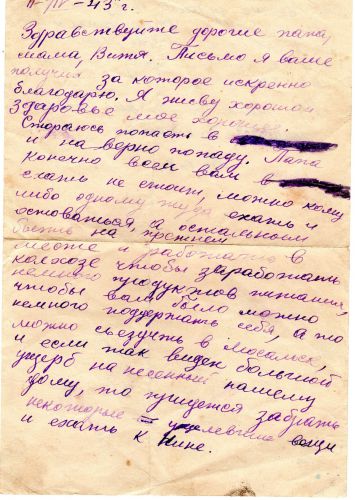 11-IV-43 г.
Здравствуйте дорогие папа,
мама, Витя. Письмо я ваше
получил за которое искренно
благодарю. Я живу хорошо
здоровье мое хорошее.
Стораюсь попасть в
и на верно попаду. Папа
конечно всем вам в
ехать не стоит, можно кому
либо одному туда ехать и
остоваться, а остальным
быть на прежнем
месте и работать в
колхозе чтобы заработать
немного продуктов питания,
чтобы вам было можно
немного поддержать себя, а то
можно съездить в Мосальск,
и если так виден большой
ущерб на несенный нашему
дому, то придется забрать
некоторые уцелевшие вещи
и ехать к Нине.